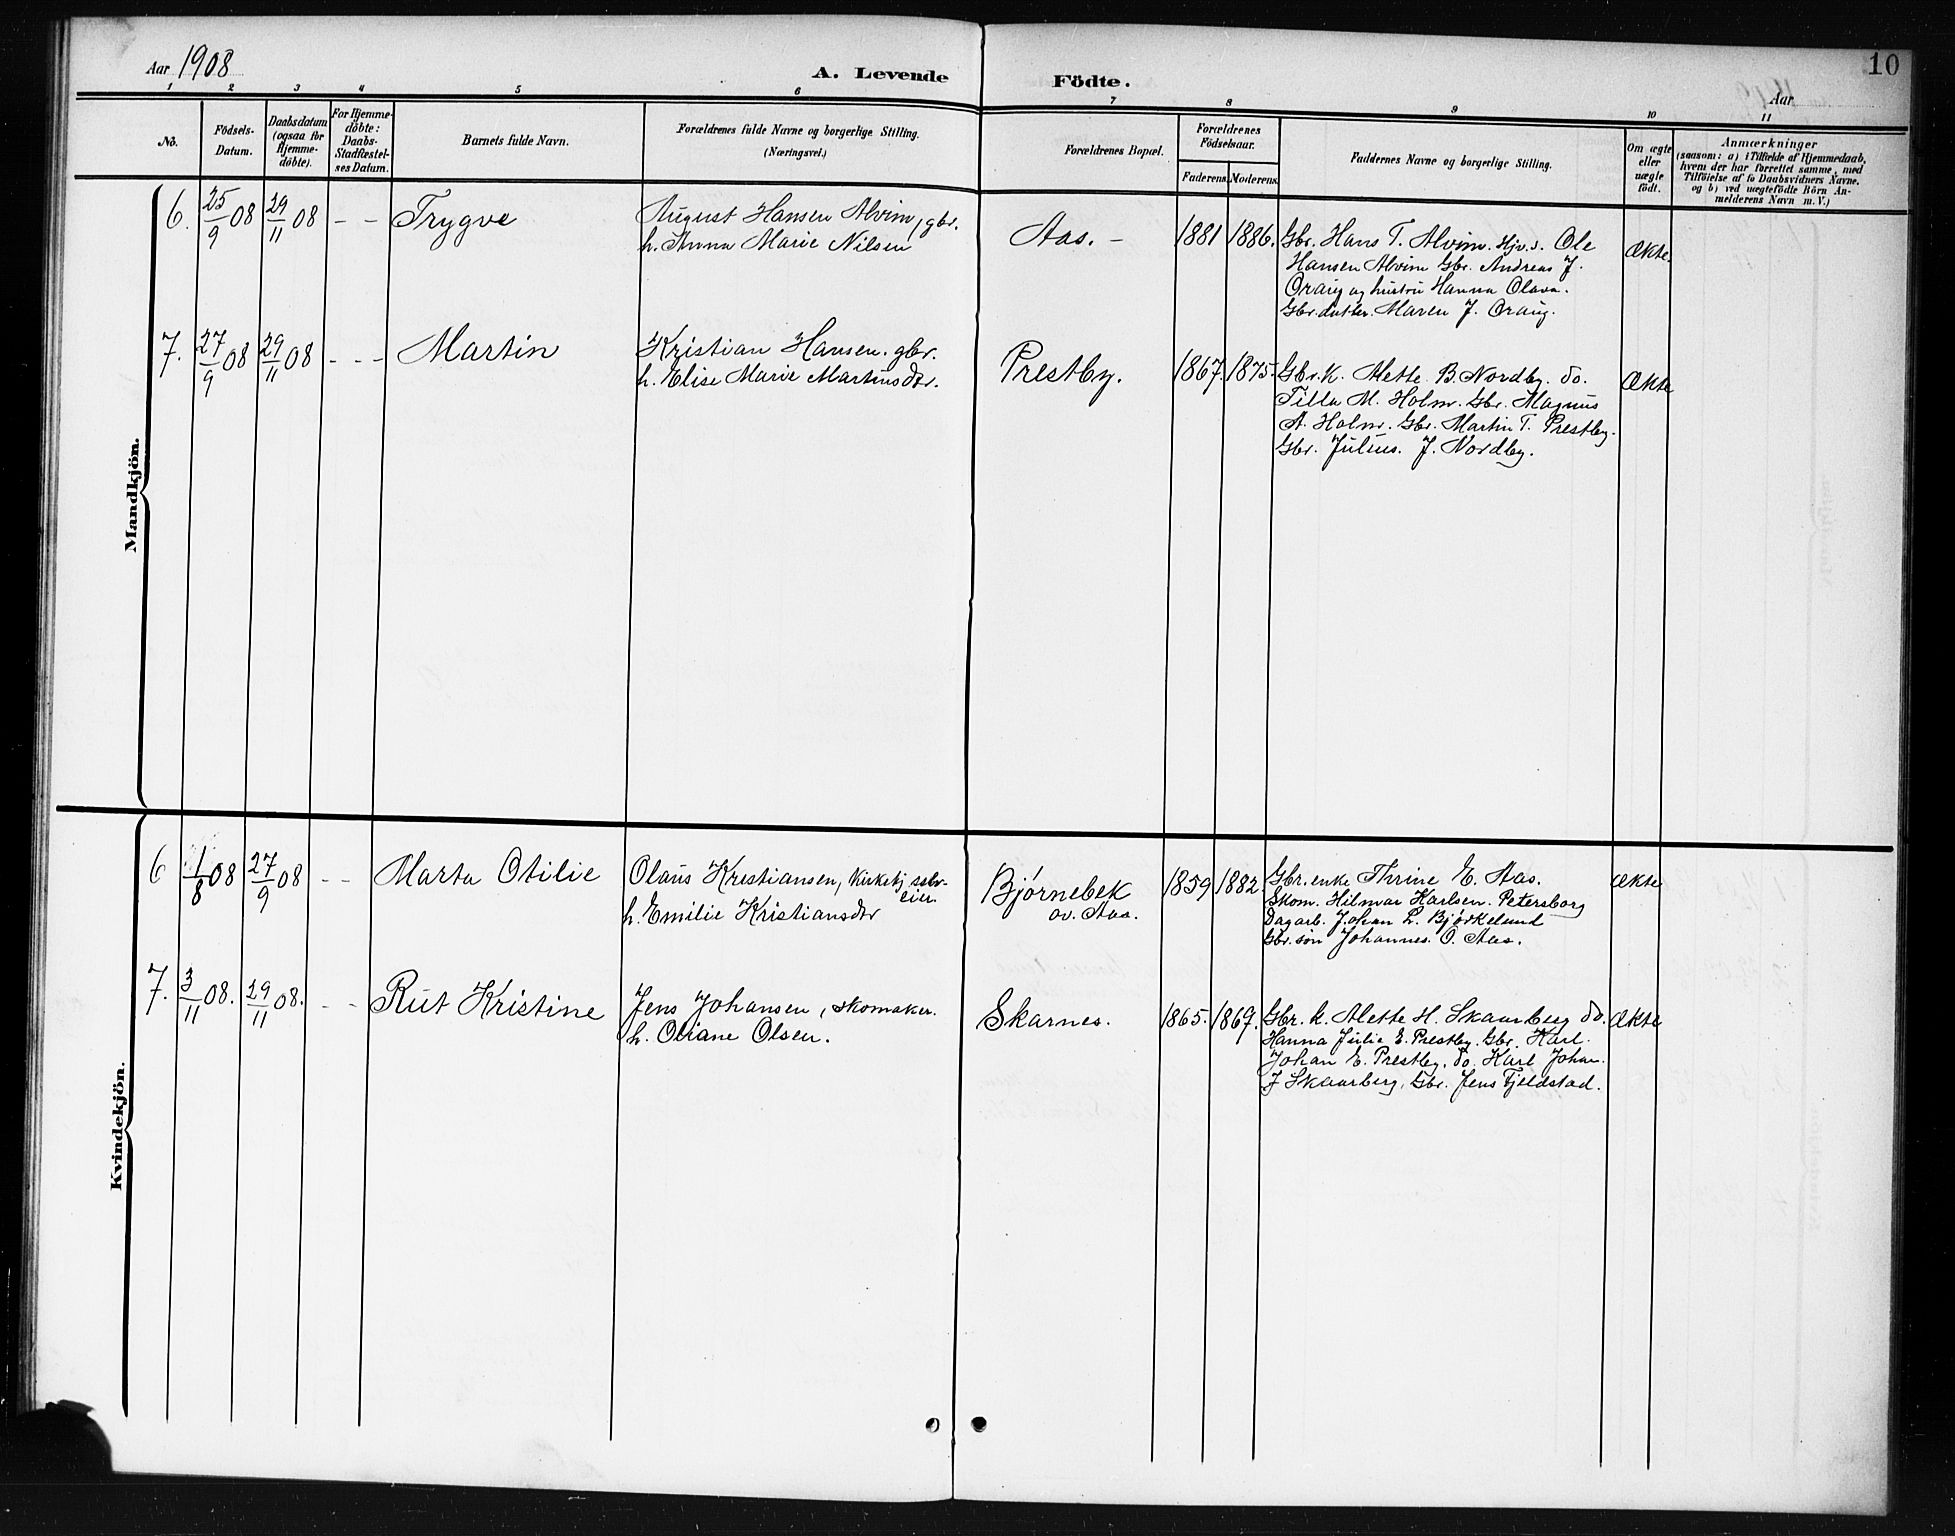 Aar 1908
A. Levende Födte.
10
Aar
1 2 3 4 5 6 7 8 9 10 11
Nô.
Födsels-
Datum.
Daabsdatum
(ogsaa for
Hjemme-
döbte).
For Hjemme-
döbte:
Daabs-
Stadfæstel-
ses Datum.
Barnets fulde Navn.
Forældrenes fulde Navne og borgerlige Stilling.
(Næringsvei.)
Forældrenes Bopæl.
Forældrenes
Födselsaar.
Faderens. Moderens.
Faddernes Navne og borgerlige Stilling.
Om ægte
eller
uægte
födt.
Anmærkninger
(saasom: a) i Tilfælde af Hjemmedaab,
hvem der har forrettet samme, med
Tilföielse af to Daabsvidners Navne.
og b) ved uægtefödte Börn An-
melderens Navn m. V.)
Mandkjön.
6. 25/9 08 29/11 08 - - Trygve
August Hansen Alvim, gbr.
h. Anna Marie Nilsen
Aas. -
1881 1886.
Gbr. Hans T. Alvim. Hjv.s. Ole
Hansen Alvim Gbr. Andreas J.
Oraug og hustru Hanna Olava.
Gbr.datter. Maren J. Oraug.
Ækte.
7. 27/9 08 29/11 08 - - - Martin
Kristian Hansen. gbr.
h. Elise Marie Martinsdtr.
Prestby.
1867. 1875.
Gbr.k. Alette B. Nordby. do.
Tilla M. Holm. Gbr. Magnus
A. Holm. Gbr. Martin T. Prestby.
Gbr. Julius. J. Nordby.
Ækte
Kvindekjön.
6 1/8 08 27/9 08 - - Marta Otilie
Olaus Kristiansen, Kirketj. selv-
eier.
h. Emilie Kristiansdtr
Bjørnebek
ov. Aas.
1859 1882.
Gbr.enke Thrine E. Aas.
Skom. Hilmar Karlsen. Petersborg
Dagarb. Johan L. Bjørkelund
Gbr.søn Johannes. O. Aas.
Ækte
7. 3/11 08. 29/11 08. - - Rut Kristine
Jens Johansen, skomaker.
h. Oliane Olsen.
Skarnes.
1865. 1869.
Gbr. k. Alette H. Skaarberg do.
Hanna Julie E. Prestby. Gbr. Karl
Johan E. Prestby. do. Karl Johan
J Skaarberg, Gbr. Jens Fjeldstad.
Ækte